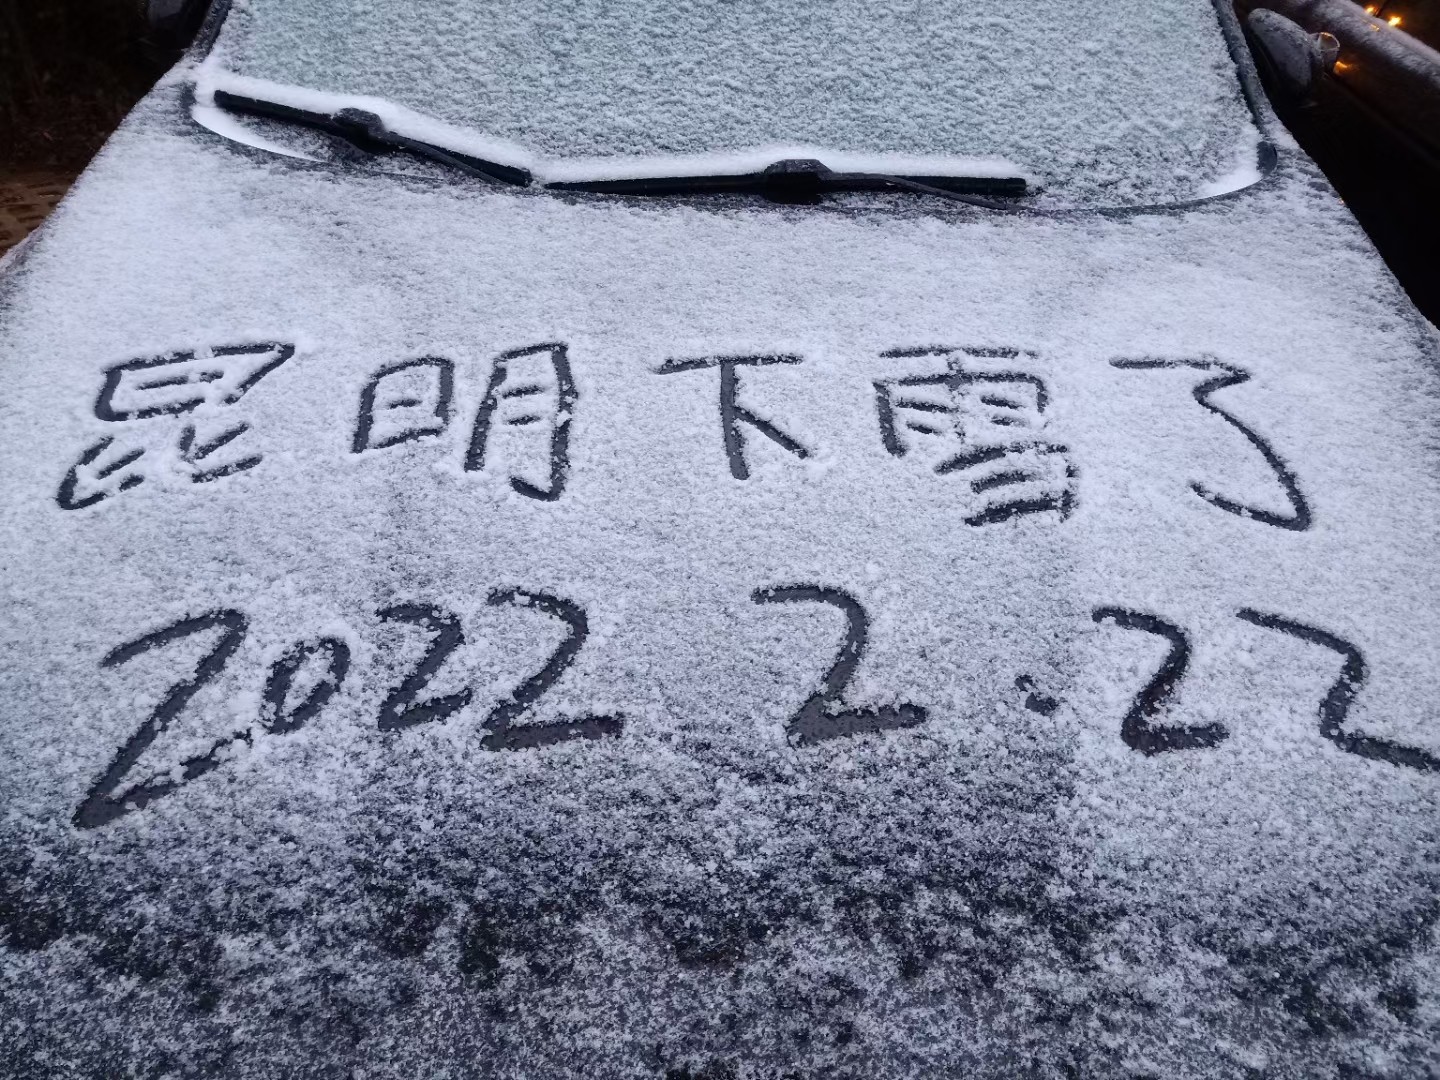 昆明下雪了
2022 2.22